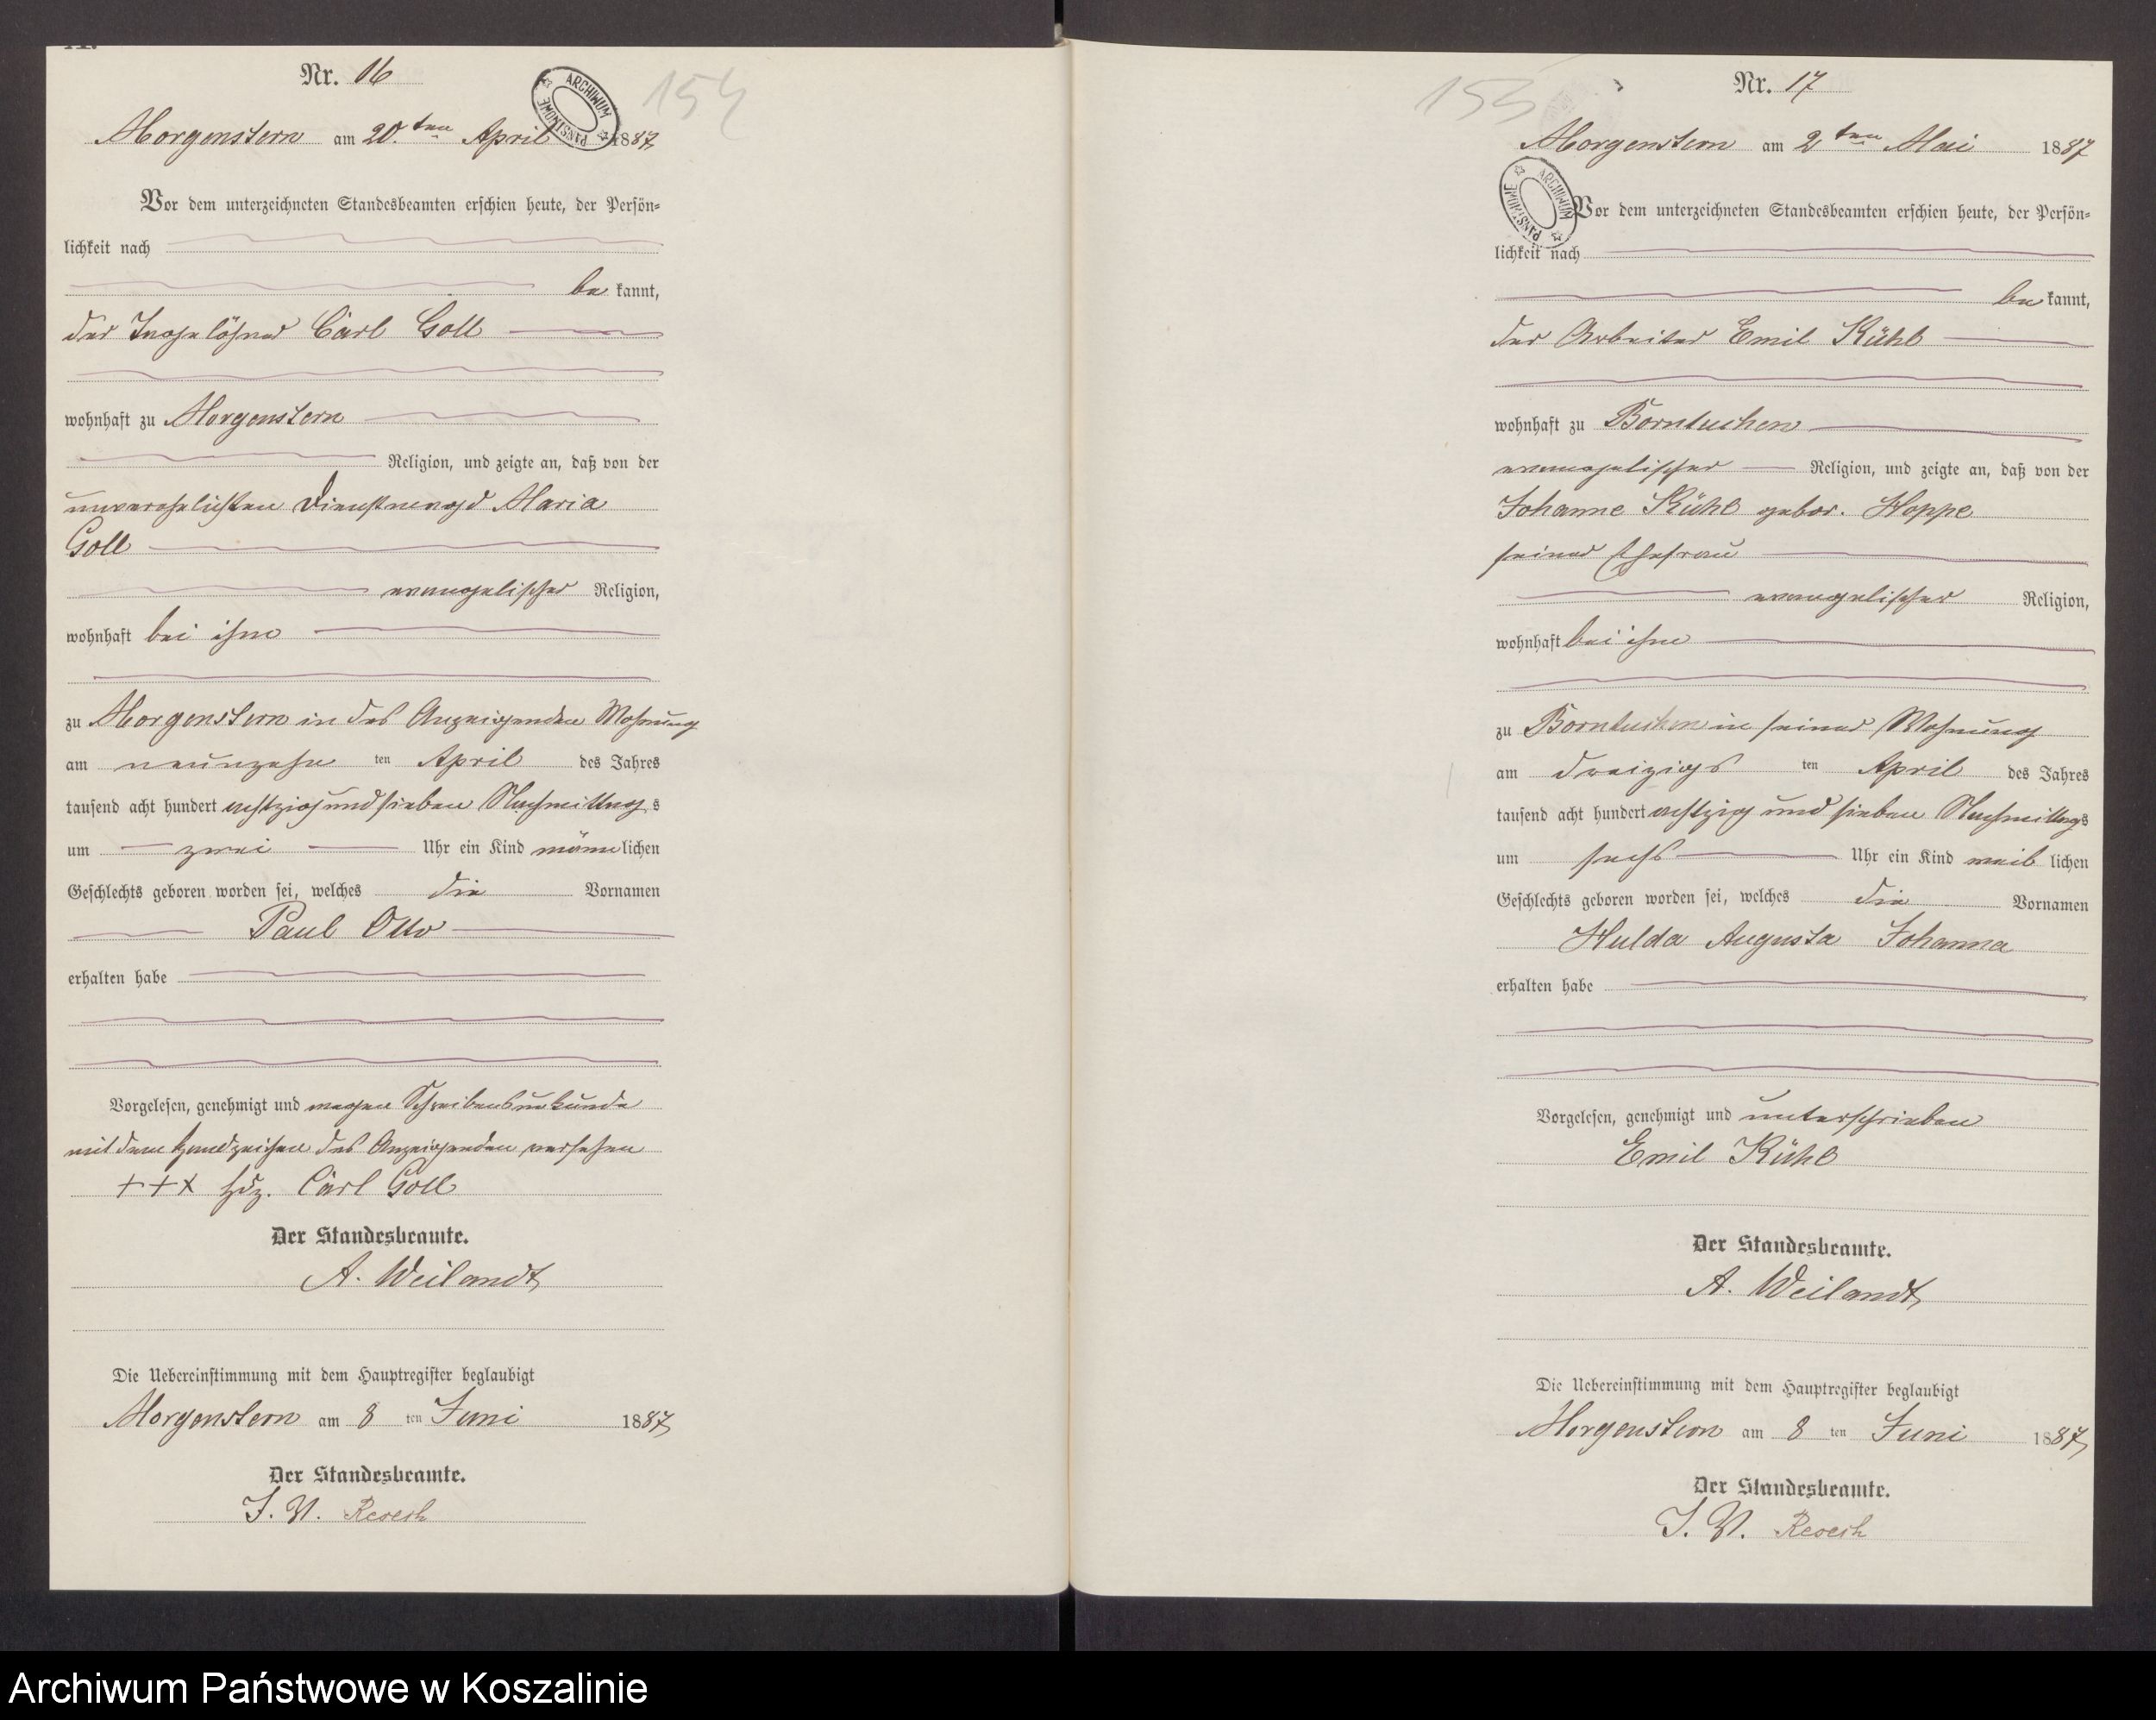 Nr. 16
154
ARCHIWUM PAŃSTWOWE
Morgenstern am 20.ten April 1887
Vor dem unterzeichneten Standesbeamten erschien heute, der Persön-
lichkeit nach
be kannt,
der Tagelöhner Carl Goll
wohnhaft zu Morgenstern
Religion, und zeigte an, daß von der
unverehelichten Dienstmagd Maria
Goll
evangelischer Religion,
wohnhaft bei ihm
zu Morgenstern in des Anzeigenden Wohnung
am neunzehn ten April des Jahres
tausend acht hundert achtzig und sieben Nachmittag s
um zwei Uhr ein Kind männ lichen
Geschlechts geboren worden sei, welches die Vornamen
Paul Otto
erhalten habe
Vorgelesen, genehmigt und wegen Schreibensunkunde
mit dem Handzeichen des Anzeigenden versehen
+++ Hdz. Carl Goll
Der Standesbeamte.
A. Weilandt
Die Uebereinstimmung mit dem Hauptregister beglaubigt
Morgenstern am 8 ten Juni 1887
Der Standesbeamte.
J. V.
Nr. 17
155
Morgenstern am 2ten Mai 1887
ARCHIWUM PAŃSTWOWE
Vor dem unterzeichneten Standesbeamten erschien heute, der Persön-
lichkeit nach
be kannt,
der Arbeiter Emil Kühl
wohnhaft zu Borntuchen
evangelischer Religion, und zeigte an, daß von der
Johanne Kühl gebor. Hoppe
seiner Ehefrau
evangelischer Religion,
wohnhaft bei ihm
zu Borntuchen in seiner Wohnung
am dreizigs ten April des Jahres
tausend acht hundert achtzig und sieben Nachmittags
um sechs Uhr ein Kind weib lichen
Geschlechts geboren worden sei, welches die Vornamen
Hulda Augusta Johanna
erhalten habe
Vorgelesen, genehmigt und unterschrieben
Emil Kühl
Der Standesbeamte.
A. Weilandt
Die Uebereinstimmung mit dem Hauptregister beglaubigt
Morgenstern am 8 ten Juni 1887
Der Standesbeamte.
J. V.
Archiwum Państwowe w Koszalinie